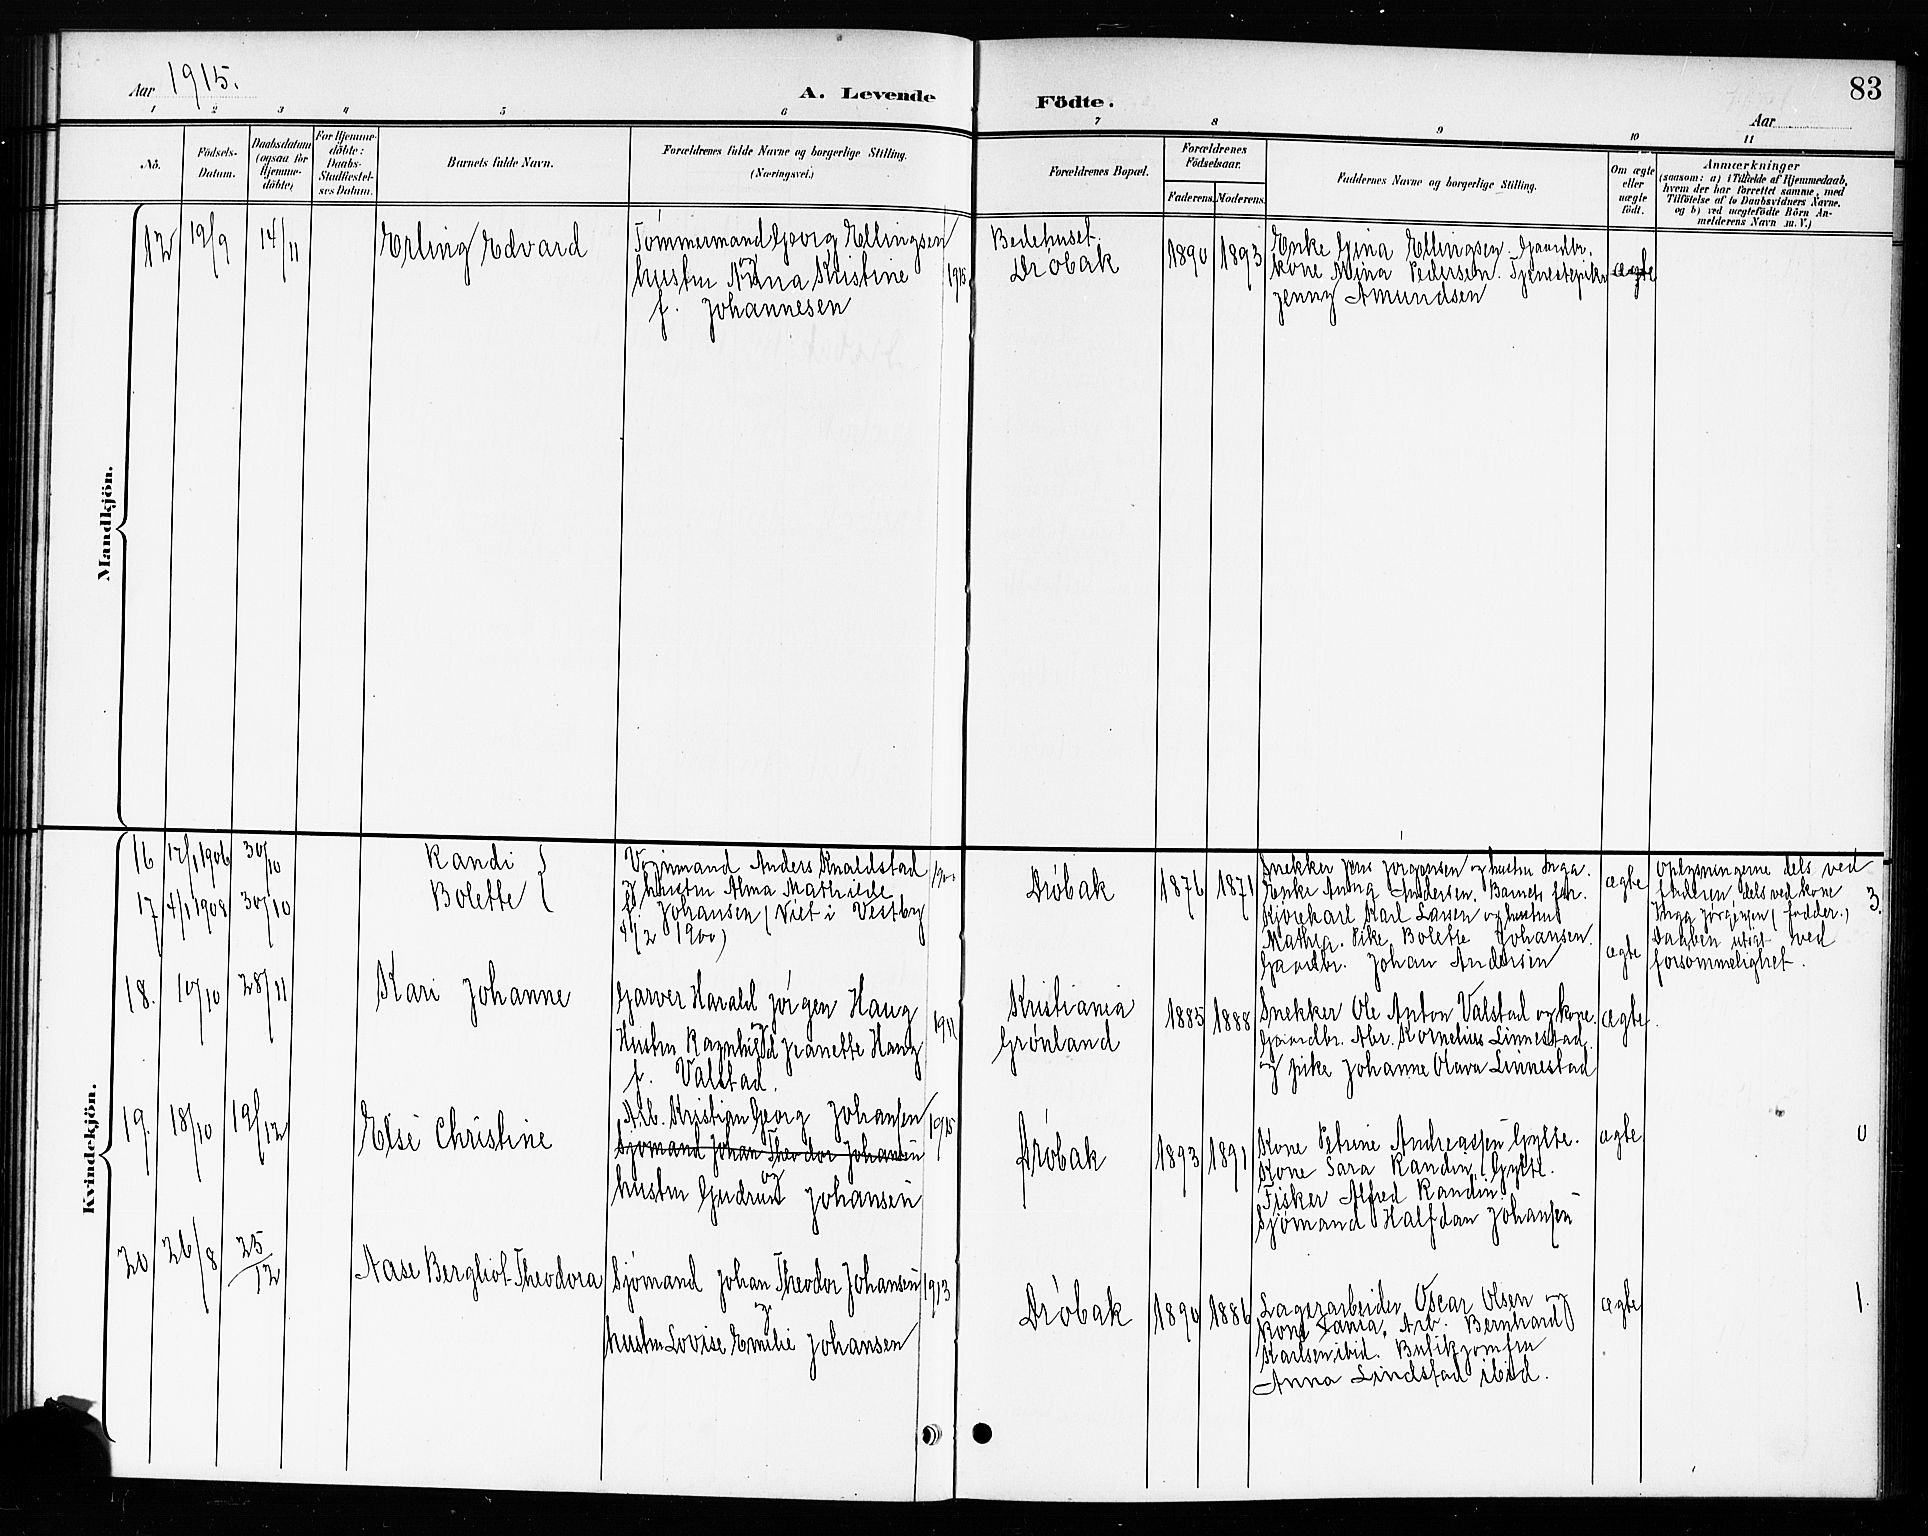 Aar 1915.
A. Levende
Födte.
83
Aar
1 2 3 4 5 6 7 8 9 10 11
No.
Födsels-
Datum.
Daabsdatum
(ogsaa for
Hjemme-
döbte)
For Hjemme-
döbte:
Daabs-
Stadfæstel-
ses Datum.
Barnets fulde Navn.
Forældrenes fulde Navne og borgerlige Stilling.
(Næringsvei.)
Forældrenes Bopæl.
Forældrenes
Födselsaar.
Faderens. Moderens.
Faddernes Navne og borgerlige Stilling.
Om ægte
eller
uægte
födt.
Anmærkninger
(saasom: a) i Tilfælde af Hjemmedaab,
hvem der har forrettet samme, med
Tilföielse af to Daabsvidners Navne.
og b) ved uægtefödte Börn An-
melderens Navn m. V.)
Mandkjön.
12 19/9 14/11 Erling Edvard
Tömmermand Georg Ellingsen
og
hustru Anna Kristine
f. Johannesen
1915
Bedehuset
Dröbak
1890 1893
Enke Gina Ellingsen. Gaardbr.
kone Mina Pedersen. Tjenestepike
Jenny Amundsen
ægte
Kvindekjön.
16 17/1 1906 30/10 Randi
17 4/1 1908 30/10 Bolette
Anders Knaldstad
og hustru Alma Mathilde
f. Johansen (Viet i Vestby
4/2 1900)
Dröbak
1876 1871
Snekker Jens Jörgensen og hustru Inga.
Enke Andersen. Barnets for.
Kjörekarl Karl Larsen og hustru
Mathea. Pike Bolette Johansen.
Gaardbr. Johan Andersen
ægte
ægte
Oplysningerne dels ved
faderen, dels ved kone
Inga Jörgensen (fadder.)
Daaben utsat ved
forsommelighet.
3.
18. 10/10 28/11 Kari Johanne
Garver Harald Jörgen Haug
og
Hustru Ragnhild Jeanette Haug
f. Valstad.
1911
Kristiania
Grönland
1885 1888
Snekker Ole Anton Valstad og kone.
Gaardbr. Abr. Kornelius Linnestad.
og pike Johanne Olava Linnestad
ægte
19. 18/10 19/12 Else Christine
Arb. Kristian Georg Johansen
Sjömand Johan Theodor Johansen
og
hustru Gudrun Johansen
1915
Dröbak
1893 1891
Kone Petrine Andreassen Gylte.
Kone Sara Randin, Gylte.
Fisker Alfred Randin.
Sjömand Halfdan Johansen
ægte
0
20 26/8 25/12 Aase Bergliot Theodora
Sjömand Johan Theodor Johansen
og
hustru Lovise Emilie Johansen
1913
Dröbak
1890 1886
Lagerarbeider Oscar Olsen og
kone Arb. Bernhard
Karlsen ibid. Butikjomfru
Anna Lindstad ibid.
ægte
1.